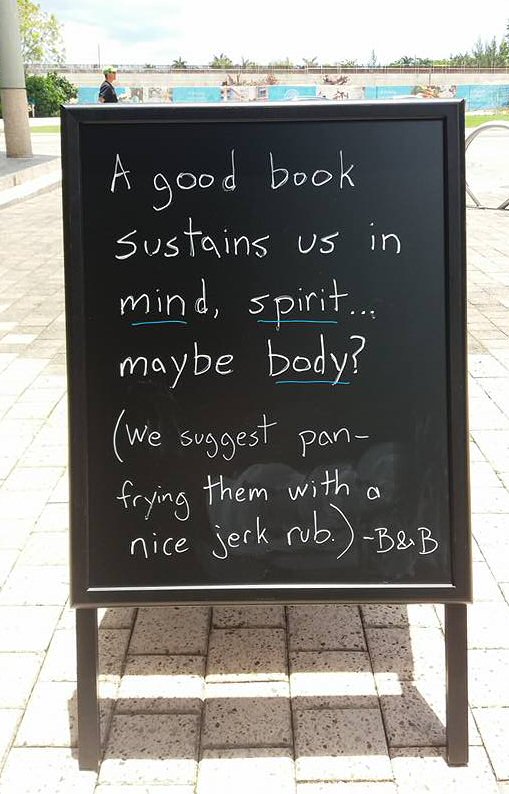 A good book
sustains us in
mind, spirit...
maybe body?
(We suggest pan-
frying them with a
nice jerk rub.) -B&B